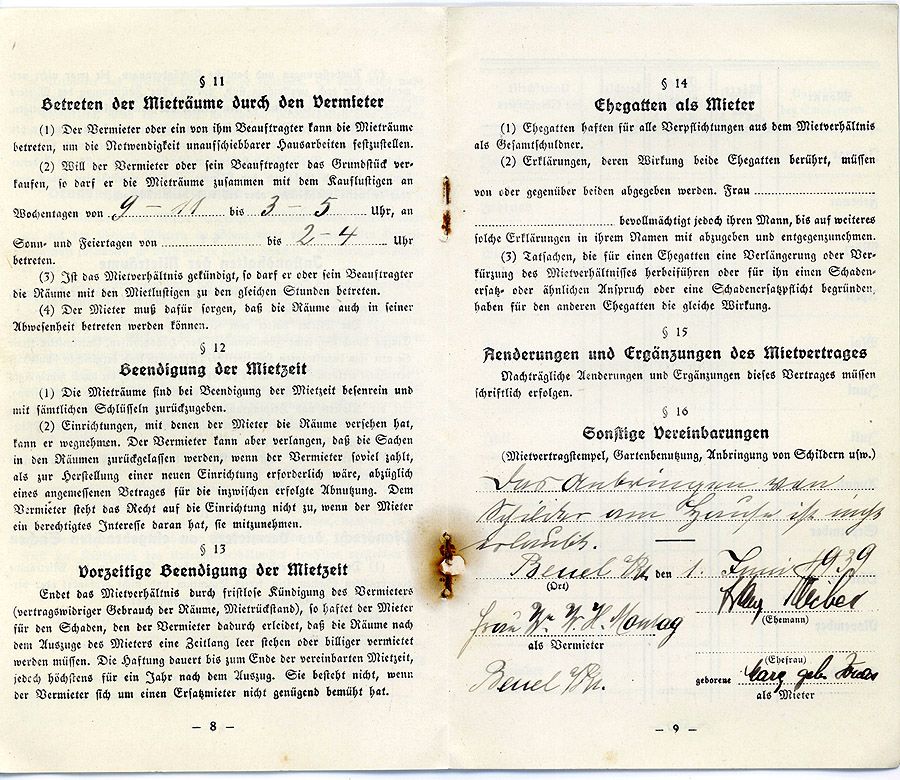 § 11
Betreten der Mieträume durch den Vermieter
(1) Der Vermieter oder ein von ihm Beauftragter kann die Mieträume
betreten, um die Notwendigkeit unaufschiebbarer Hausarbeiten festzustellen.
(2) Will der Vermieter oder sein Beauftragter das Grundstück ver-
kaufen, so darf er die Mieträume zusammen mit dem Kauflustigen an
Wochentagen von 9 – 11 bis 3 – 5 Uhr, an
Sonn- und Feiertagen von bis 2-4 Uhr
betreten.
(3) Ist das Mietverhältnis gekündigt, so darf er oder sein Beauftragter
die Räume mit den Mietlustigen zu den gleichen Stunden betreten.
(4) Der Mieter muß dafür sorgen, daß die Räume auch in seiner
Abwesenheit betreten werden können.
§ 12
Beendigung der Mietzeit
(1) Die Mieträume sind bei Beendigung der Mietzeit besenrein und
mit sämtlichen Schlüsseln zurückzugeben.
(2) Einrichtungen, mit denen der Mieter die Räume versehen hat,
kann er wegnehmen. Der Vermieter kann aber verlangen, daß die Sachen
in den Räumen zurückgelassen werden, wenn der Vermieter soviel zahlt,
als zur Herstellung einer neuen Einrichtung erforderlich wäre, abzüglich
eines angemessenen Betrages für die inzwischen erfolgte Abnutzung. Dem
Vermieter steht das Recht auf die Einrichtung nicht zu, wenn der Mieter
ein berechtigtes Interesse daran hat, sie mitzunehmen.
§ 13
Vorzeitige Beendigung der Mietzeit
Endet das Mietverhältnis durch fristlose Kündigung des Vermieters
(vertragswidriger Gebrauch der Räume, Mietrückstand), so haftet der Mieter
für den Schaden, den der Vermieter dadurch erleidet, daß die Räume nach
dem Auszuge des Mieters eine Zeitlang leer stehen oder billiger vermietet
werden müssen. Die Haftung dauert bis zum Ende der vereinbarten Mietzeit,
jedoch höchstens für ein Jahr nach dem Auszug. Sie besteht nicht, wenn
der Vermieter sich um einen Ersatzmieter nicht genügend bemüht hat.
– 8 –
§ 14
Ehegatten als Mieter
(1) Ehegatten haften für alle Verpflichtungen aus dem Mietverhältnis
als Gesamtschuldner.
(2) Erklärungen, deren Wirkung beide Ehegatten berührt, müssen
von oder gegenüber beiden abgegeben werden. Frau
bevollmächtigt jedoch ihren Mann, bis auf weiteres
solche Erklärungen in ihrem Namen mit abzugeben und entgegenzunehmen.
(3) Tatsachen, die für einen Ehegatten eine Verlängerung oder Ver-
kürzung des Mietverhältnisses herbeiführen oder für ihn einen Schaden-
ersatz- oder ähnlichen Anspruch oder eine Schadenersatzpflicht begründen,
haben für den anderen Ehegatten die gleiche Wirkung.
§ 15
Aenderungen und Ergänzungen des Mietvertrages
Nachträgliche Aenderungen und Ergänzungen dieses Vertrages müssen
schriftlich erfolgen.
§ 16
Sonstige Vereinbarungen
(Mietvertragstempel, Gartenbenutzung, Anbringung von Schildern usw.)
Das Anbringen von
Schilder am Hause ist nicht
erlaubt.
Beuel den 1. Juni 1939
(Ort)
(Ehemann)
Frau W. H. Montag
als Vermieter
(Ehefrau)
Beuel
geborene Marg geb.
als Mieter
– 9 –